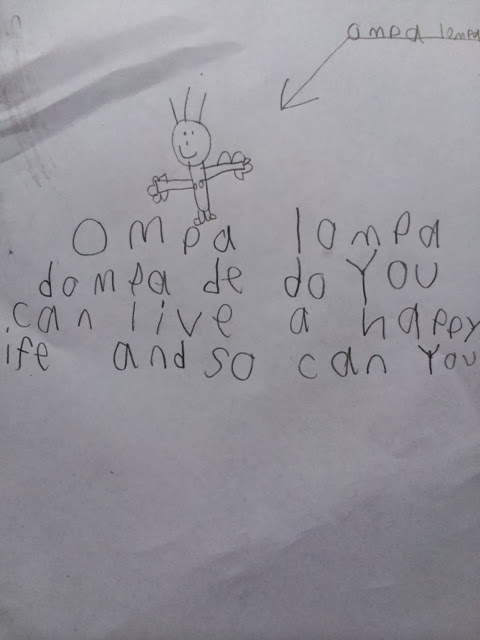 ompa lompa
Ompa lompa
dompa de do You
can live a happy
life and so can You